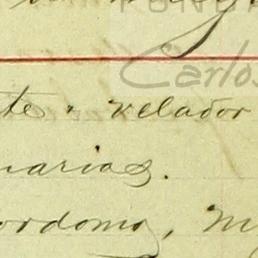 Carlos
te. velador
uarias.
ordomo, m